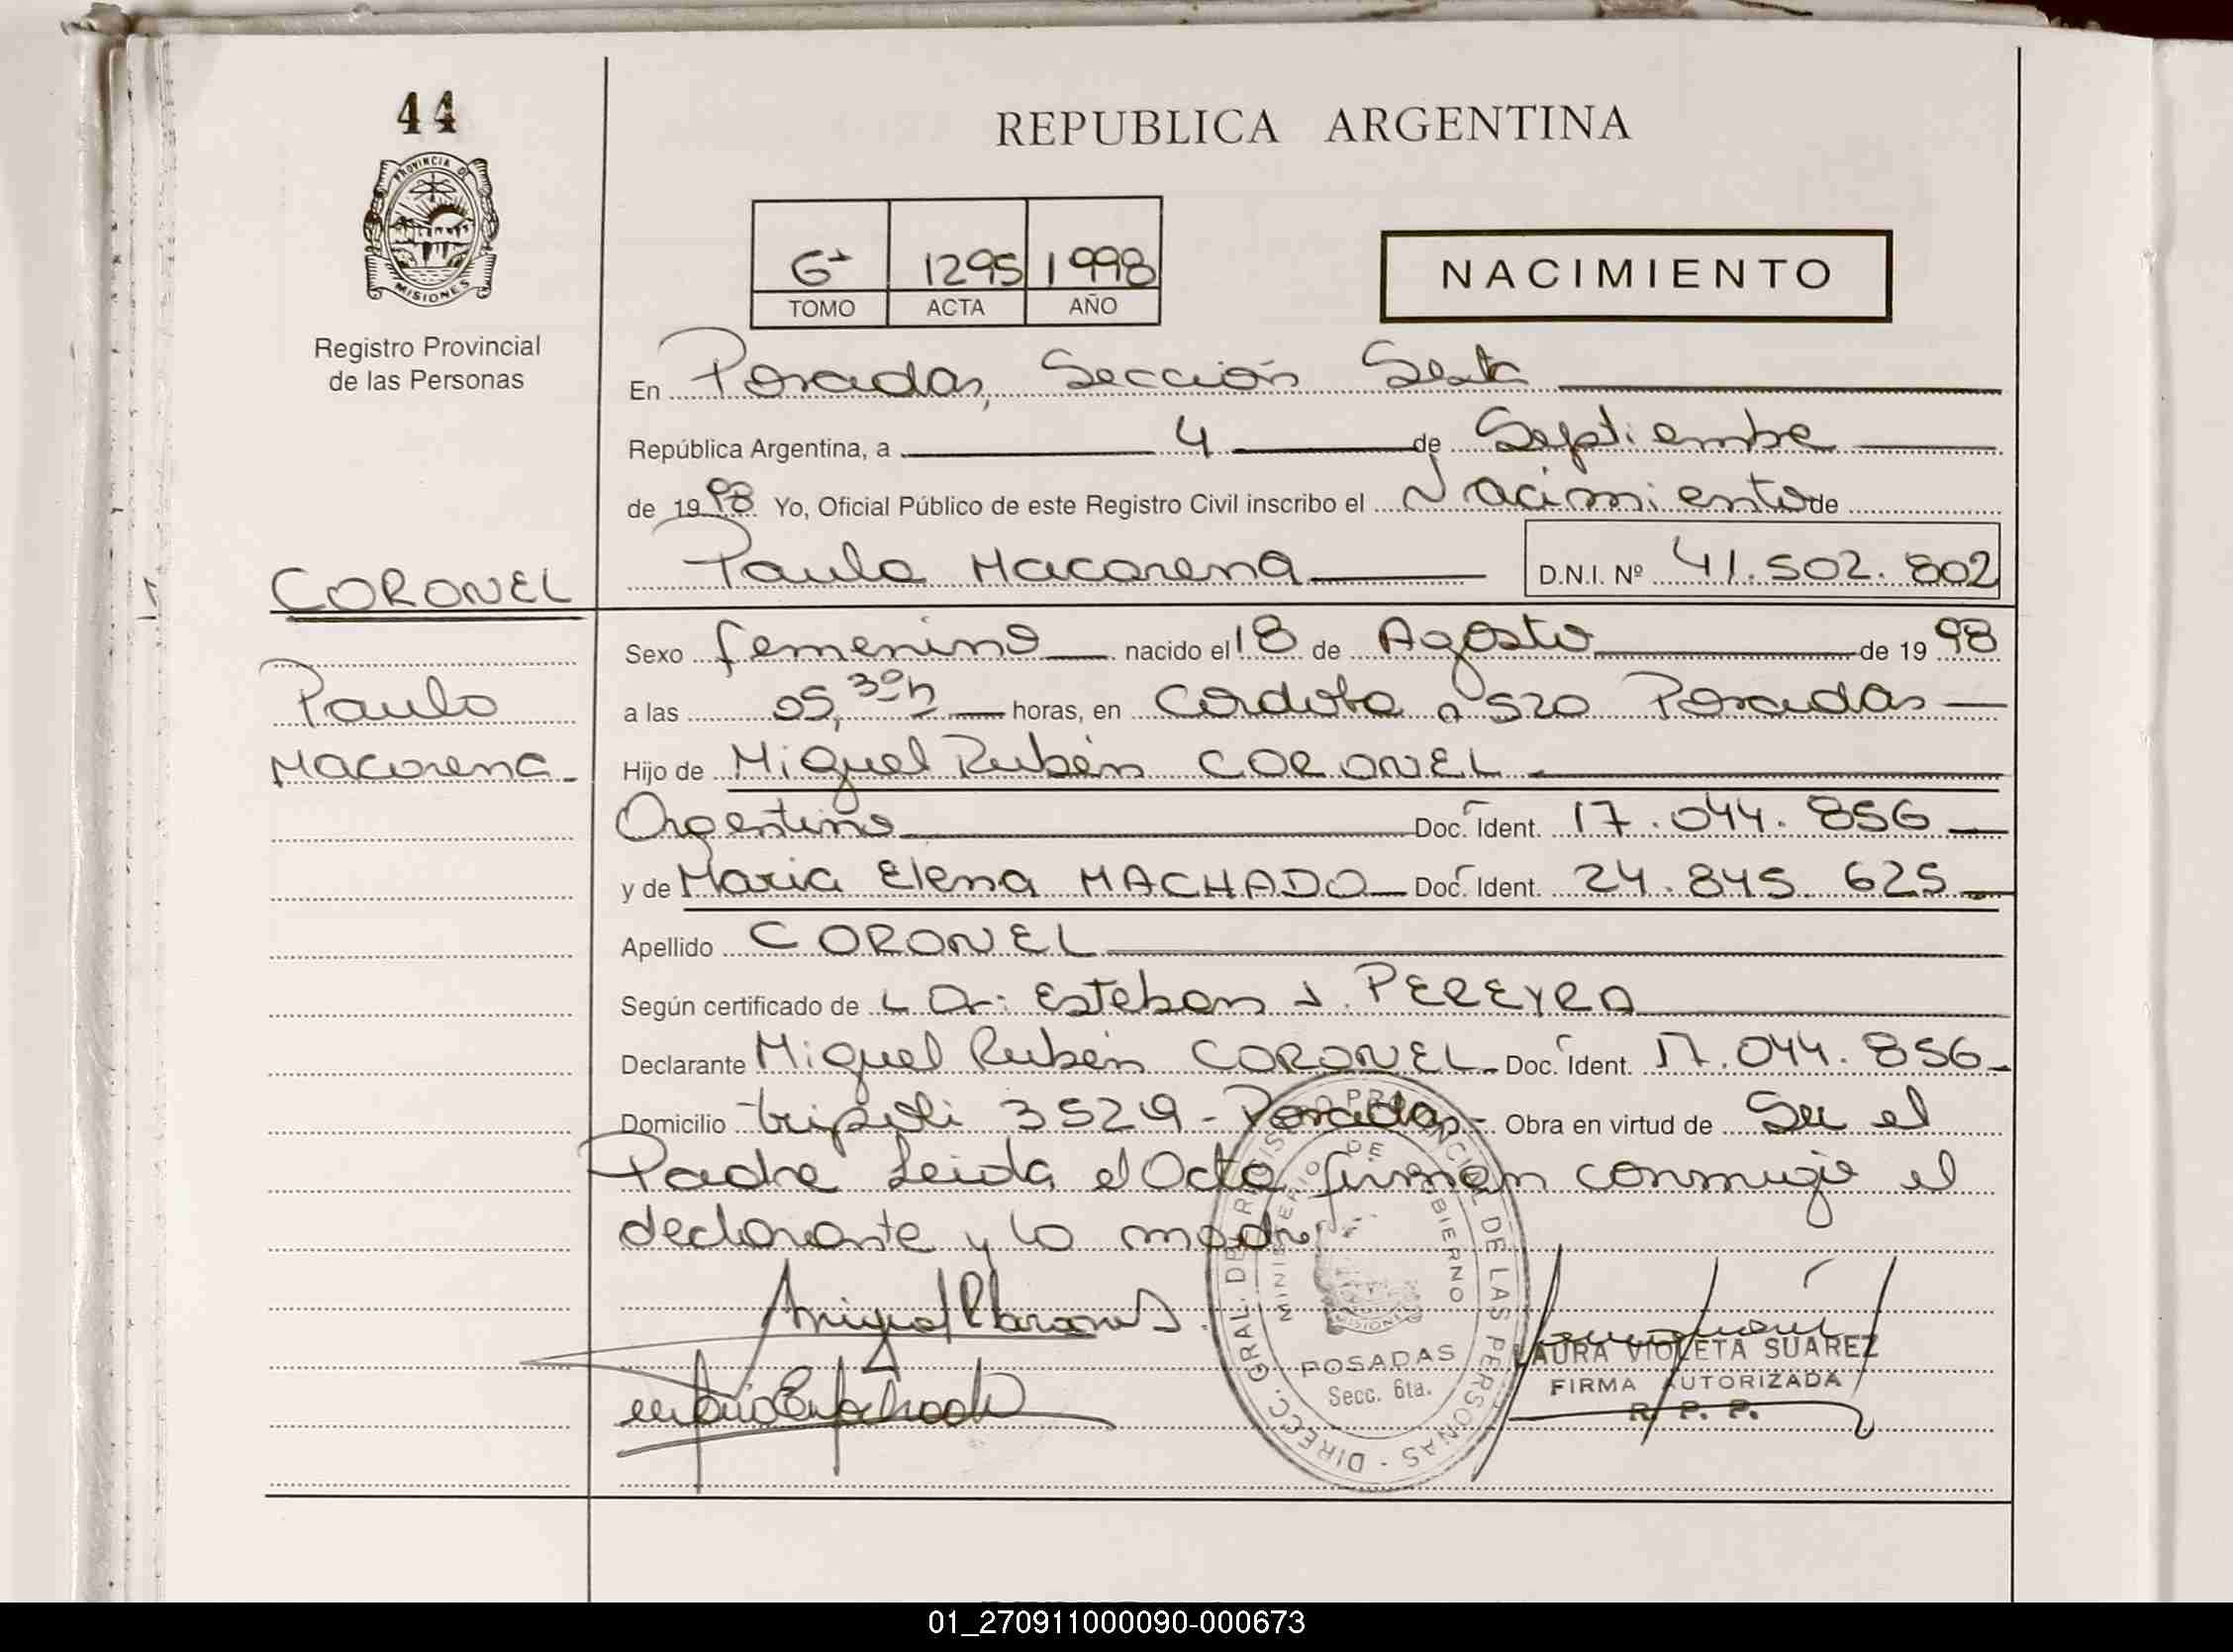 44
PROVINCIA DE
MISIONES
Registro Provincial
de las Personas
REPUBLICA ARGENTINA
6ª 1295 1998
TOMO ACTA AÑO
NACIMIENTO
En Posadas, Sección Sexta
República Argentina, a 4 de Septiembre
de 1998 Yo, Oficial Público de este Registro Civil inscribo el Nacimiento de
Paula Macarena D.N.I. Nº 41.502.802
CORONEL
Paula
Macarena
Sexo femenino nacido el 18 de Agosto de 1998
a las 05,30h horas, en Cordoba nº 520 Posadas
Hijo de Miguel Rubén CORONEL
Argentino Doc. Ident. 17.044.856
y de Maria Elena MACHADO Doc. Ident. 24.845.625
Apellido CORONEL
Según certificado de L Dr: Esteban J. PEREYRA
Declarante Miguel Rubén CORONEL Doc. Ident. 17.044.856
Domicilio tripoli 3529 - Posadas - Obra en virtud de Ser el
Padre Leida el Acta firman conmigo el
declarante y la madre
DIRECC. GRAL. DE REGISTRO PROVINCIAL DE LAS PERSONAS
MINISTERIO DE GOBIERNO
MISIONES
POSADAS
Secc. 6ta.
LAURA VIOLETA SUAREZ
FIRMA AUTORIZADA
R. P. P.
01_270911000090-000673